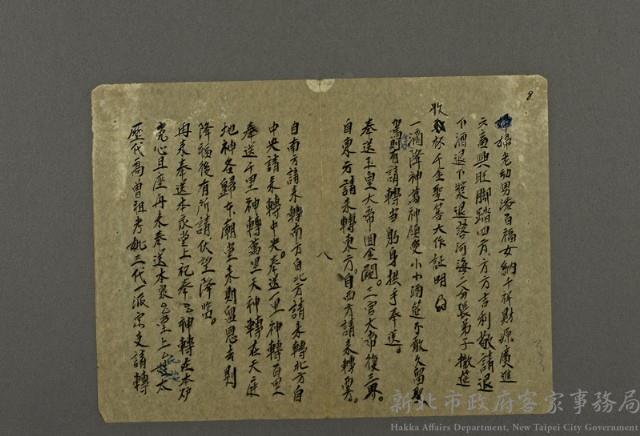 婦老幼男添百福女納千祥財源廣進
六畜興旺腳踏四方方方吉利敬請退
下酒退下漿退落河海三分張弟子撤筵
收於千金聖客大作証明
一酒降神萬神隨變小小酒筵不敢久留聖
駕則有請轉當躬身拱手奉送。
奉送玉皇大帝回金闕。三宮大帝復三來。
自東方請來轉東方，自西方請來轉西方。
八
自南方請來轉南方自北方請來轉北方自
中央請來轉中央。奉送百里神轉百里
奉送千里神轉萬里天神轉在天庭
地神各歸本廟堂未期盟恩去則
降福後有所請伏望降臨。
再來奉送本家堂上祀奉神轉在本炉
寬心且座再來奉送本家堂上太
歷代高曾祖考妣三代派宗支請轉
新北市政府客家事務局
Hakka Affairs Department, New Taipei City Government